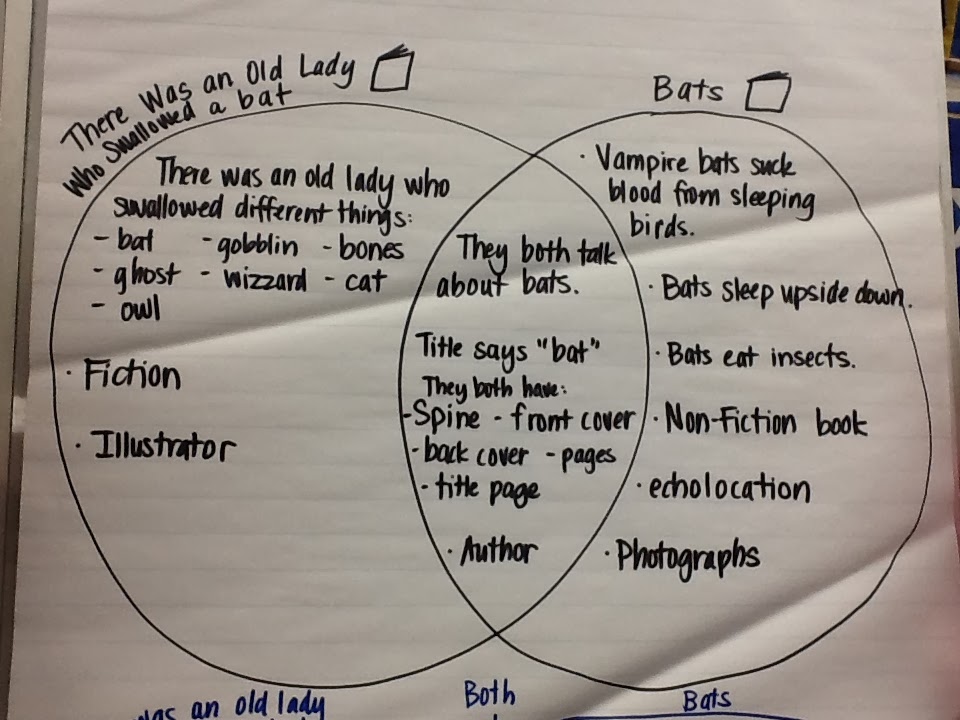 There Was an Old Lady
Who Swallowed a bat
There was an old lady who
swallowed different things:
- bat - gobblin - bones
- ghost - wizzard - cat
- owl
· Fiction
· Illustrator
They both talk
about bats.
Title says "bat"
They both have:
- Spine - front cover
- back cover - pages
- title page
· Author
Bats
· Vampire bats suck
blood from sleeping
birds.
· Bats sleep upside down.
· Bats eat insects.
· Non-Fiction book
· echolocation
· Photographs
was an old lady
Both
Bats